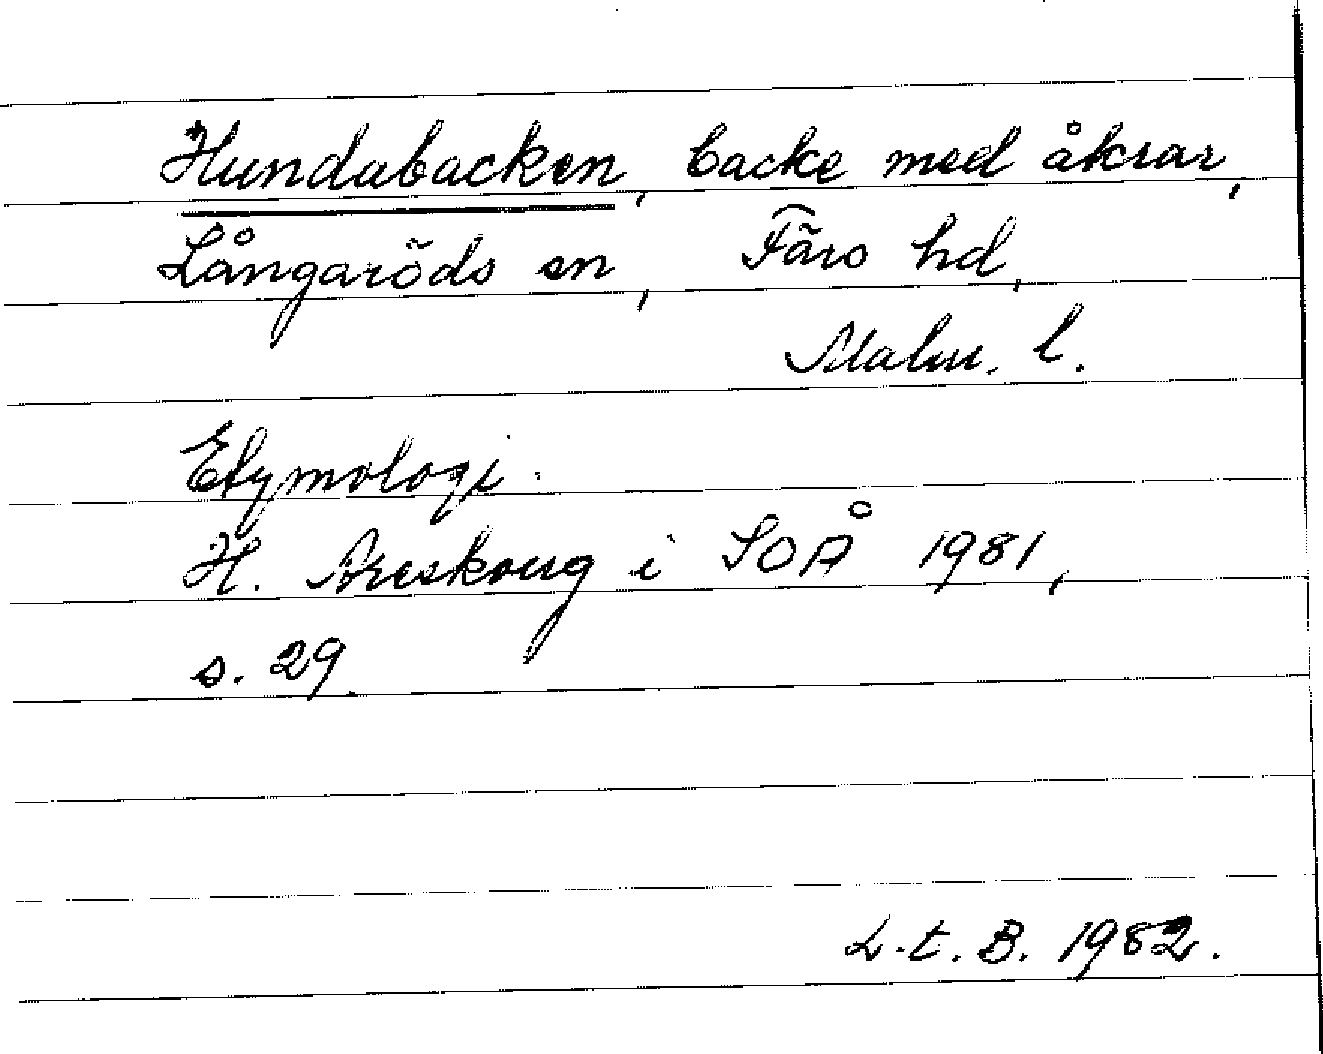 Hundabacken, backe med åkrar,
Långaröds sn, Färs hd,
Malm. l.
Etymologi.
H. Areskoug i SOÅ 1981,
s. 29.
L.t. B. 1982.